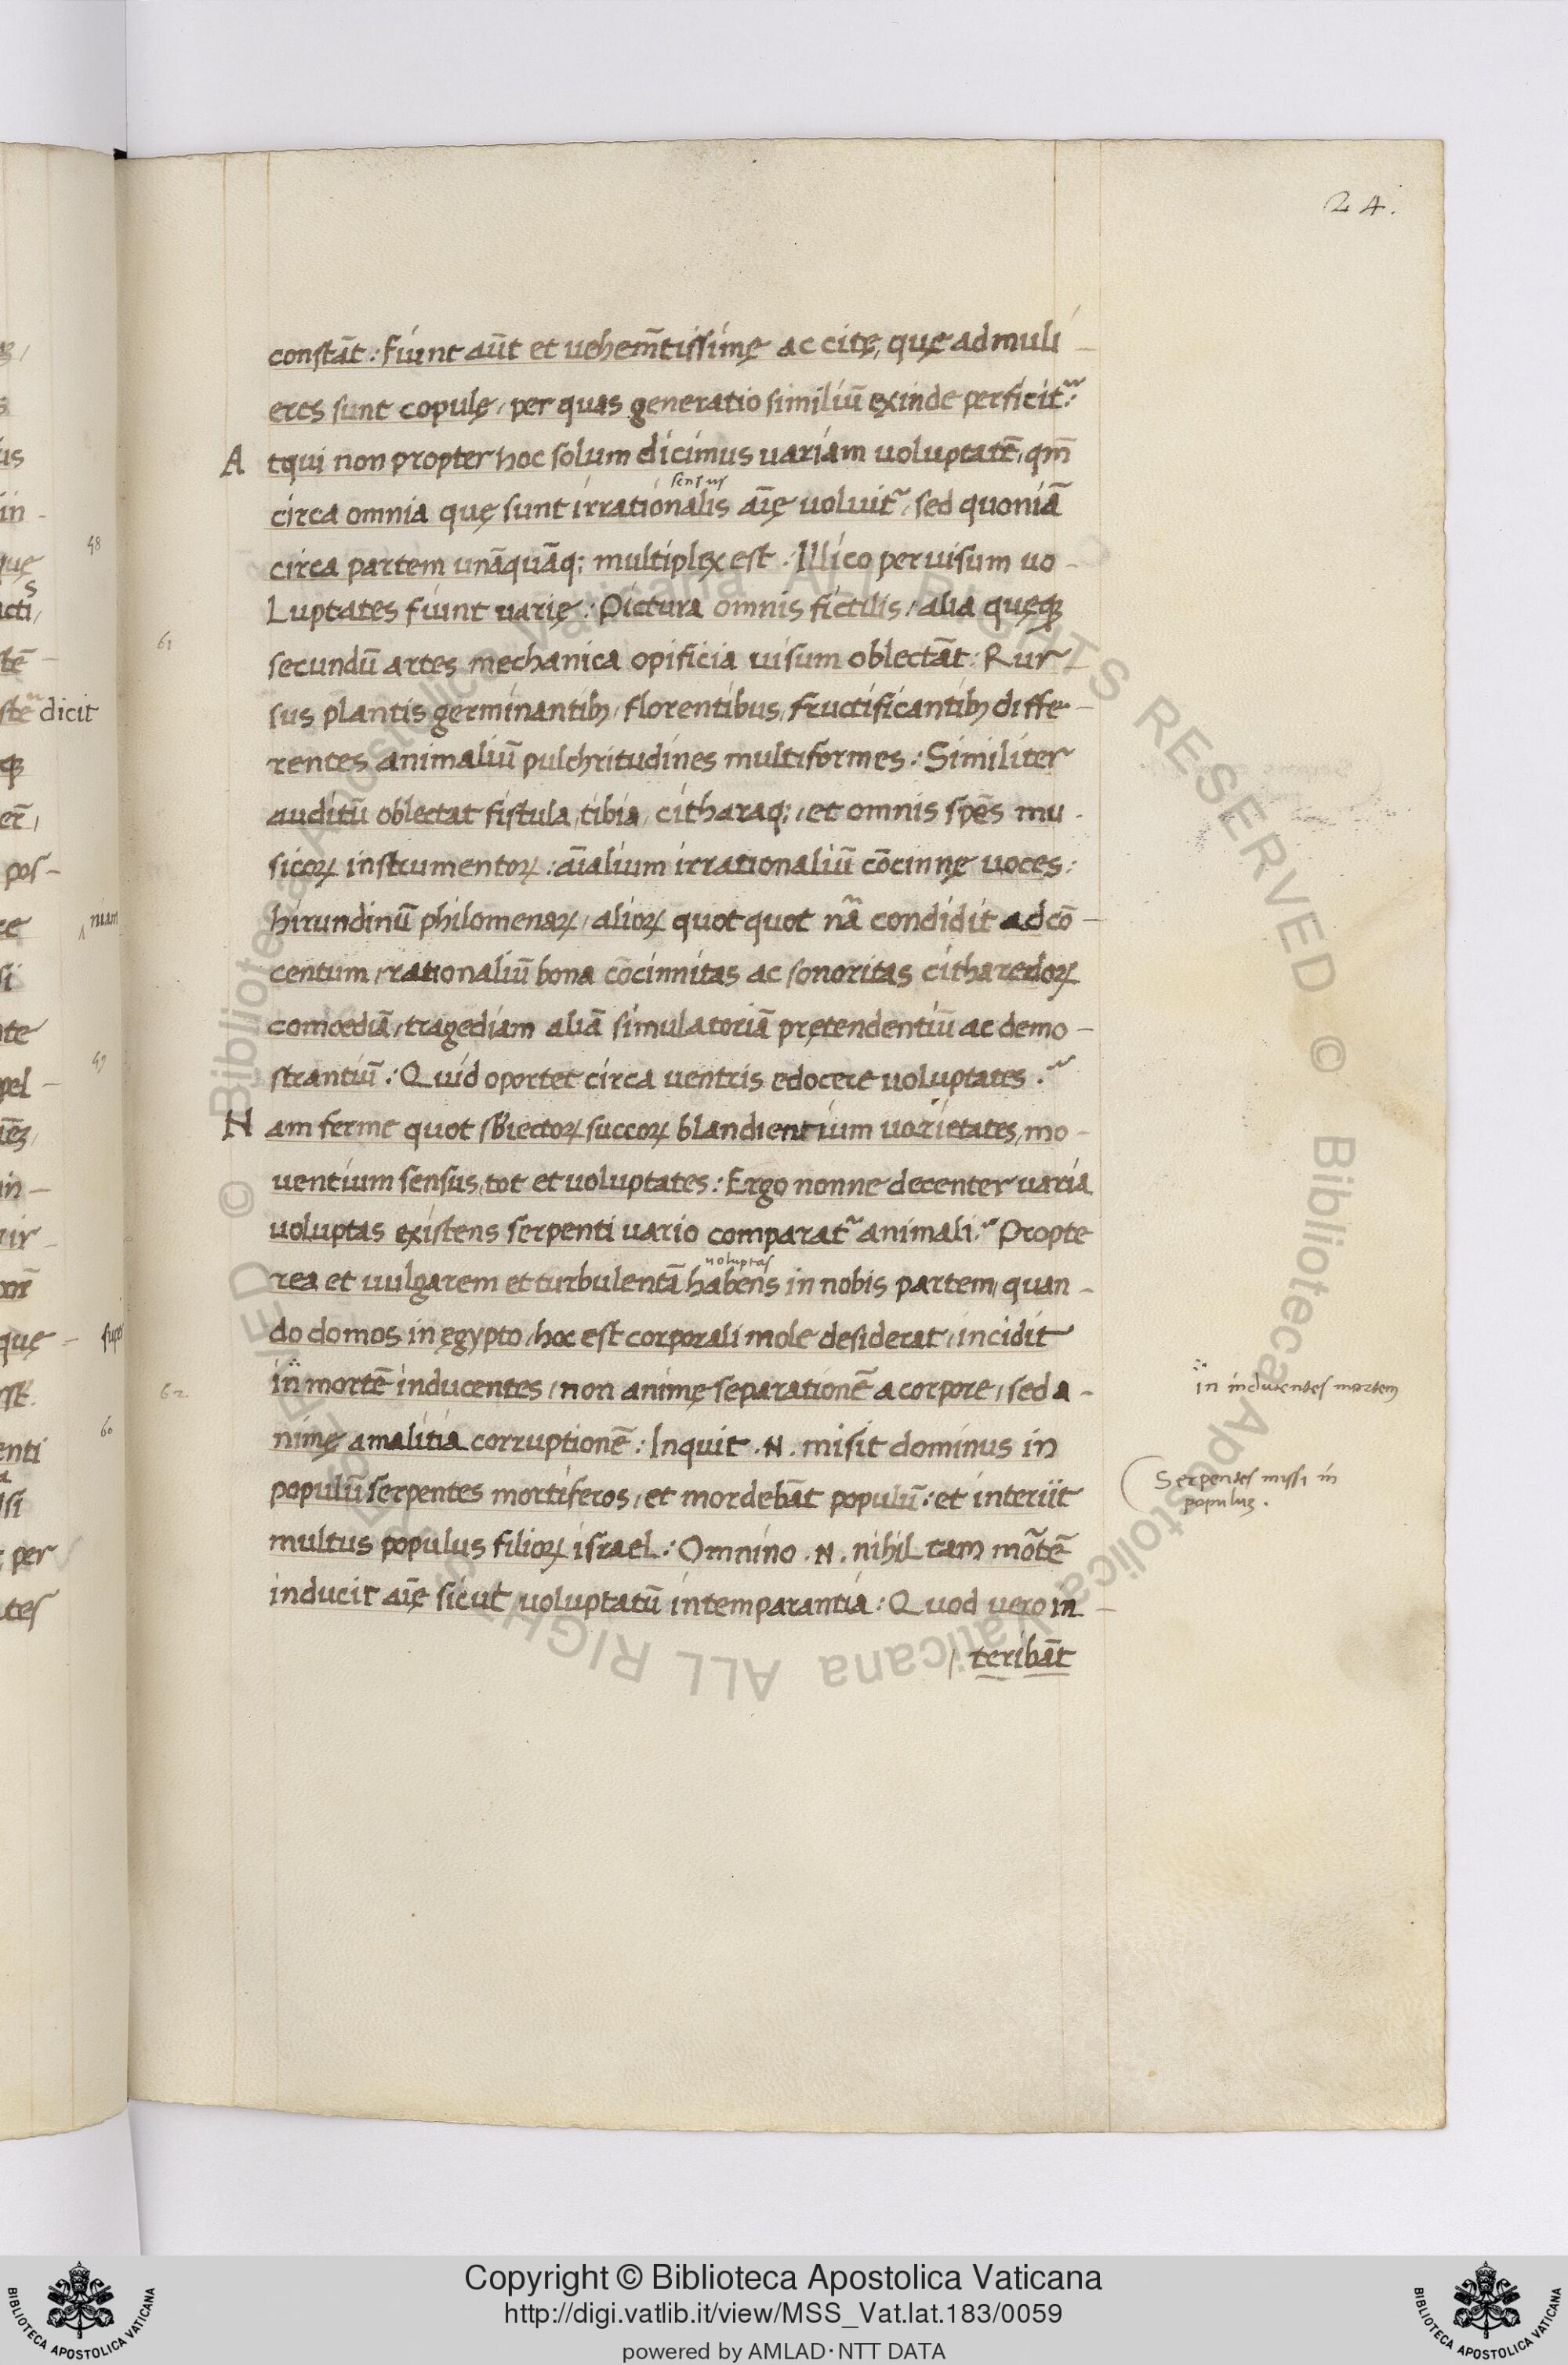 24.
constāt : fiunt aūt et uehem̄tissimę ac citę, quę ad muli
eres sunt copulę, per quas generatio similiū exinde perficit᷑ :
A tqui non propter hoc solum dicimus uariam uoluptatē, qm̄
sensus
circa omnia quę sunt irrationalis aīę uoluit᷑, sed quoniā
circa partem unāquāq; multiplex est : Illico per uisum uo -
61
luptates fiunt uarię : Pictura omnis fictilis, alia quęqꝫ
secundū artes mechanica opificia uisum oblectāt : Rur
sus plantis germinantibꝫ, florentibus, fructificantibꝫ diffe -
rentes animaliū pulchritudines multiformes : Similiter
auditū oblectat fistula, tibia, citharaq;, et omnis spēs mu -
sicoꝝ instrumentoꝝ : aīalium irrationaliū cōcinnę uoces :
hirundinū philomenaꝝ, alioꝝ quot quot nā condidit ad cō -
centum, rationaliū bona cōcinnitas ac sonoritas citharedoꝝ
comoediā, tragediam aliā simulatoriā prętendentiū ac demo -
strantiū : Quid oportet circa uentris edocere uoluptates .
N am ferme quot sb̄iectoꝝ succoꝝ blandientium uarietates, mo -
uentium sensus, tot et uoluptates : Ergo nonne decenter uaria
uoluptas existens serpenti uario comparat᷑ animali : Propte
uoluptas
rea et uulgarem et turbulentā habens in nobis partem, quan -
do domos in ęgypto, hoc est corporali mole desiderat, incidit
62
in mortē inducentes, non animę separationē a corpore, sed a -
in inducentes mortem
nimę a malitia corruptionē : Inquit .N. misit dominus in
populū serpentes mortiferos, et mordebāt populū : et interiit
Serpentes missi in
populuꝫ.
multus populus filioꝝ israel : Omnino .N. nihil tam mōtē
inducit aīę sicut uoluptatū intemparantia : Quod uero in -
teribāt
Copyright © Biblioteca Apostolica Vaticana
http://digi.vatlib.it/view/MSS_Vat.lat.183/0059
powered by AMLAD·NTT DATA